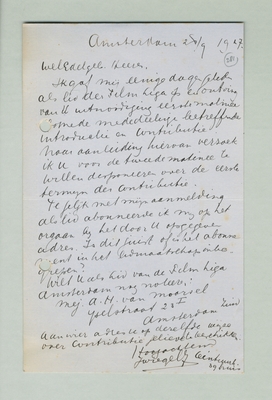 Amsterdam 28/9 1927.
WelEdelgeb. Heeren.
Ik gaf mij eenige dagen geleden
als lid der Film Liga op en ontving
van U uitnoodiging eerste matinée
alsmede mededeeling betreffende
introductie en contributie.
Naar aanleiding hiervan verzoek
ik U voor de tweede matinée te
willen disponeeren over de eerste
termijn der contributie.
Tegelijk met mijn aanmelding
als lid abonneerde ik mij op het
orgaan bij het door U opgegeven
adres. Is dit juist of is het abonne-
ment in het lidmaatschap inbe-
grepen?
Wilt U als lid van de Film Liga
Amsterdam nog noteren:
Mej. A. H. van Moorsel
Amsterdam Zuid
Aan wier adres U op dezelfde wijze
over contributie gelieve te beschikken.
Hoogachtend